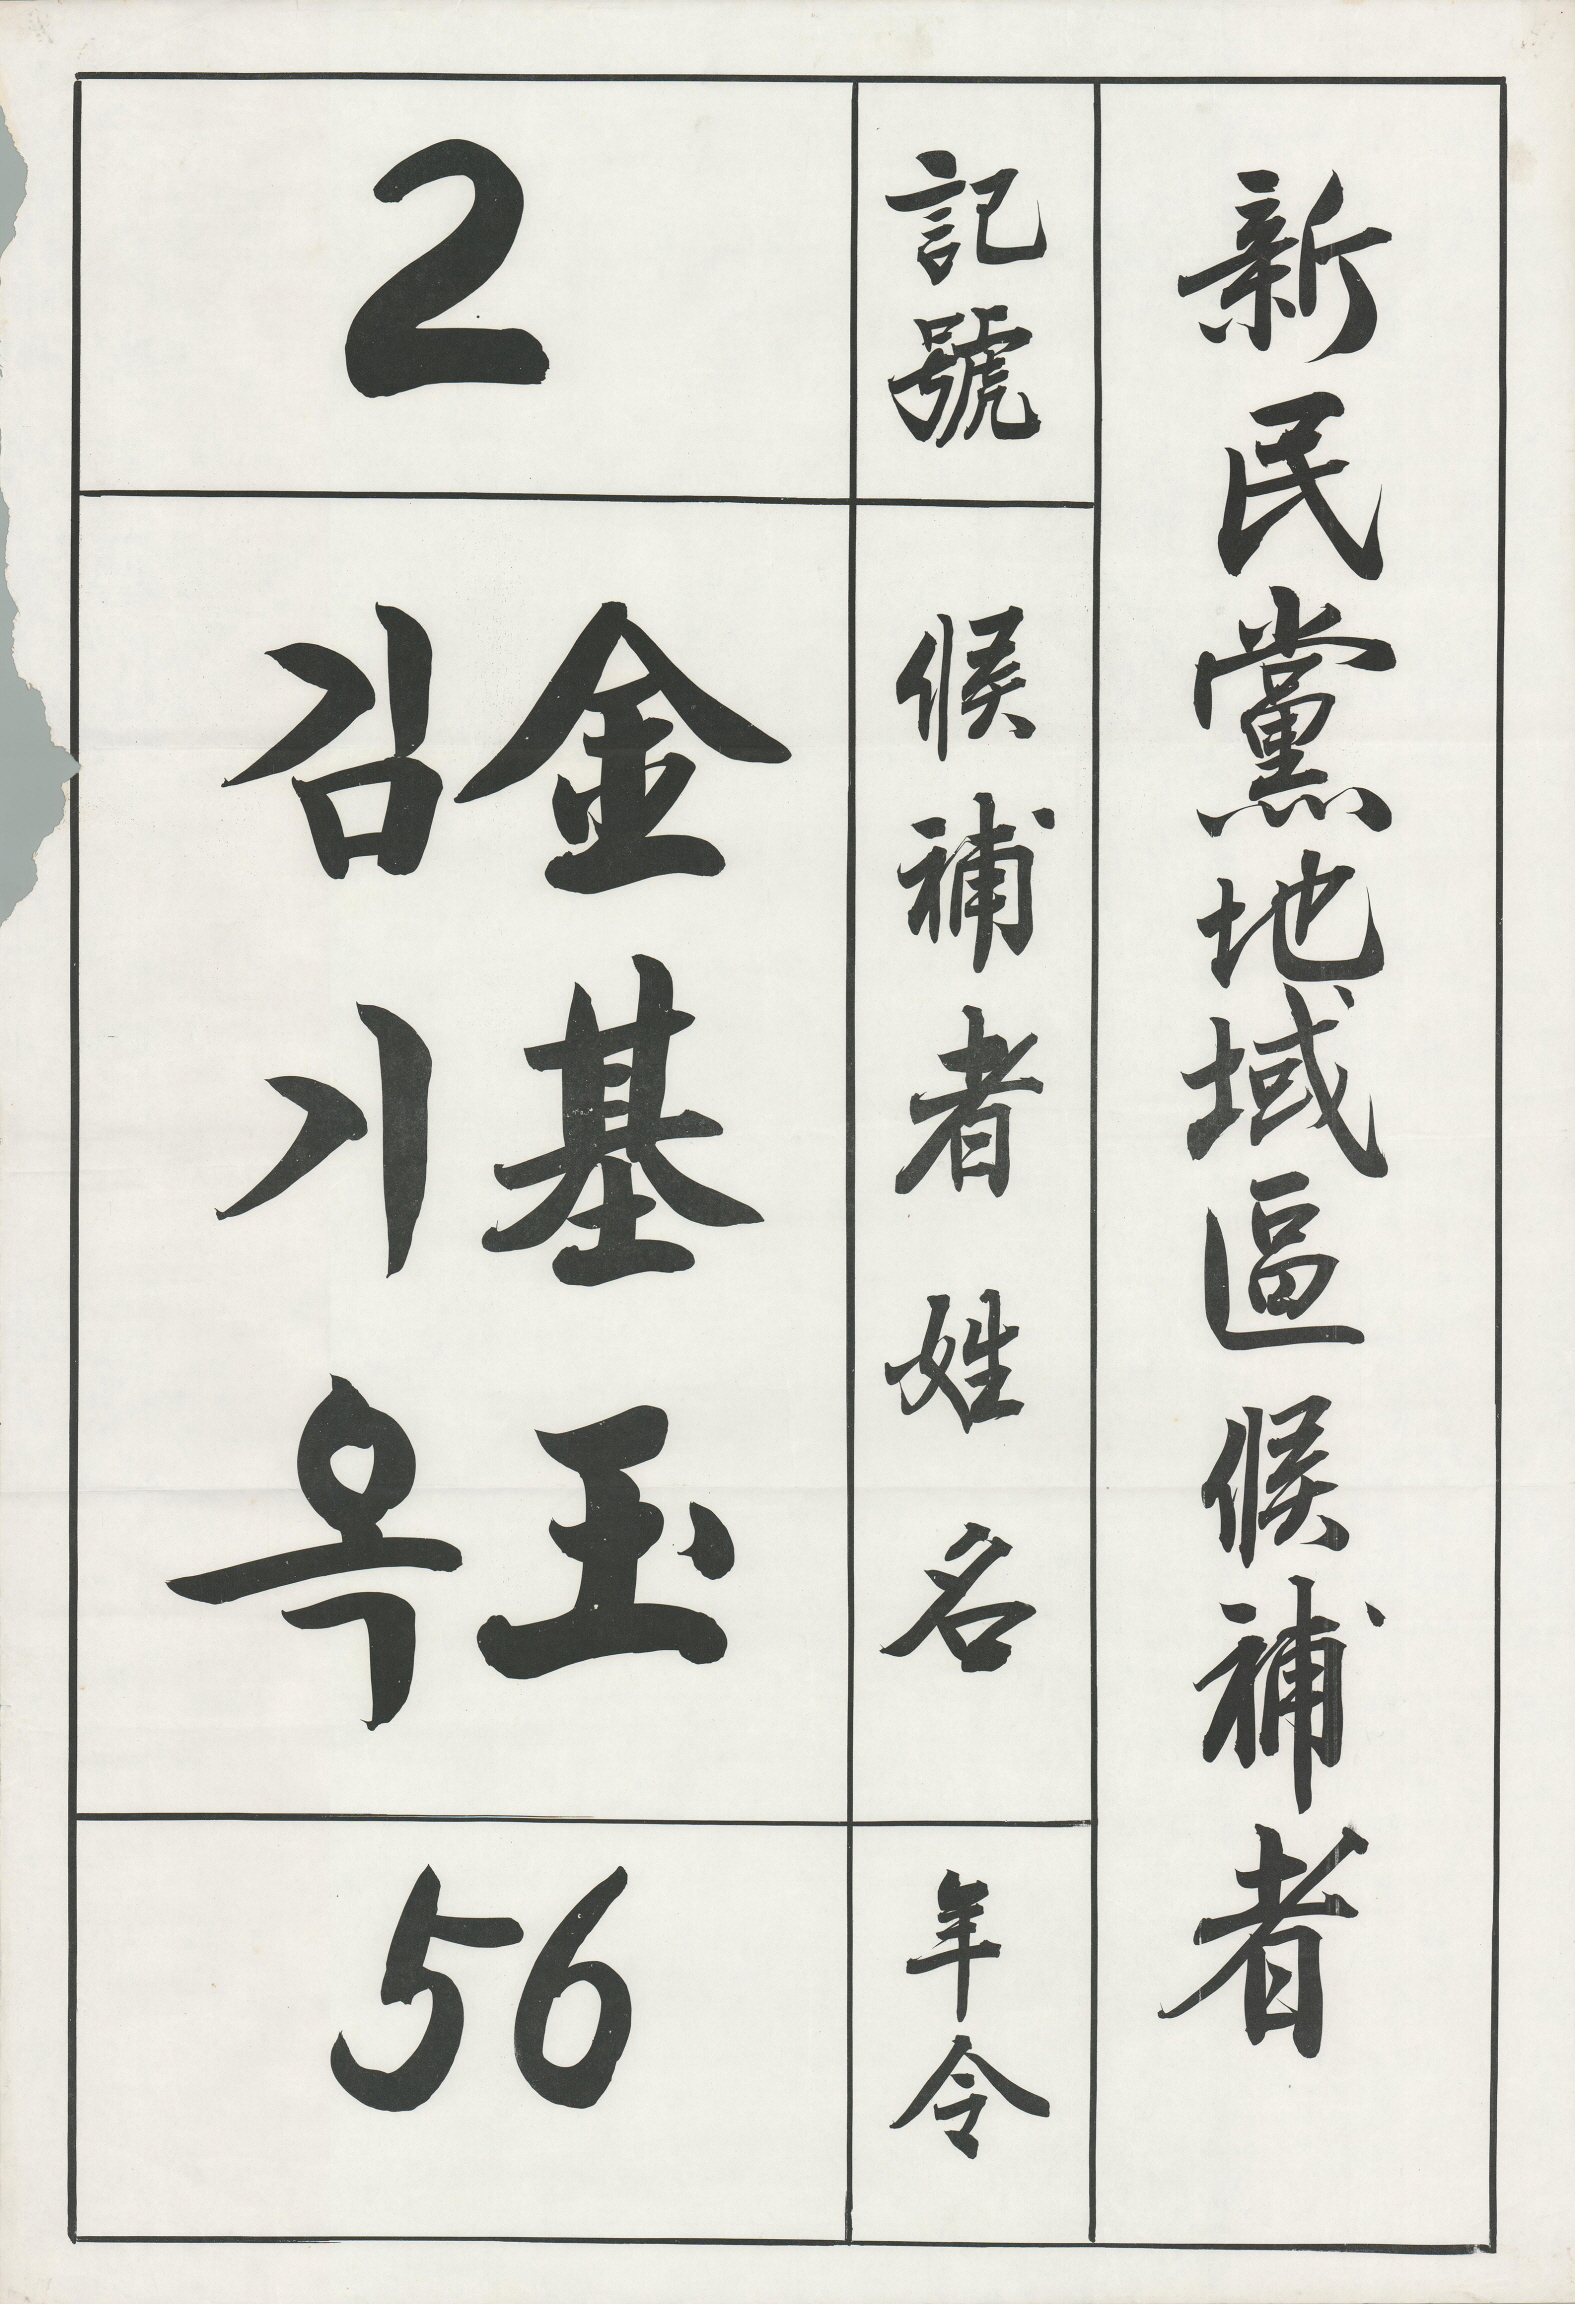 新民黨地域區候補者
記號
2
候補者姓名
金基玉
김기옥
年令
56